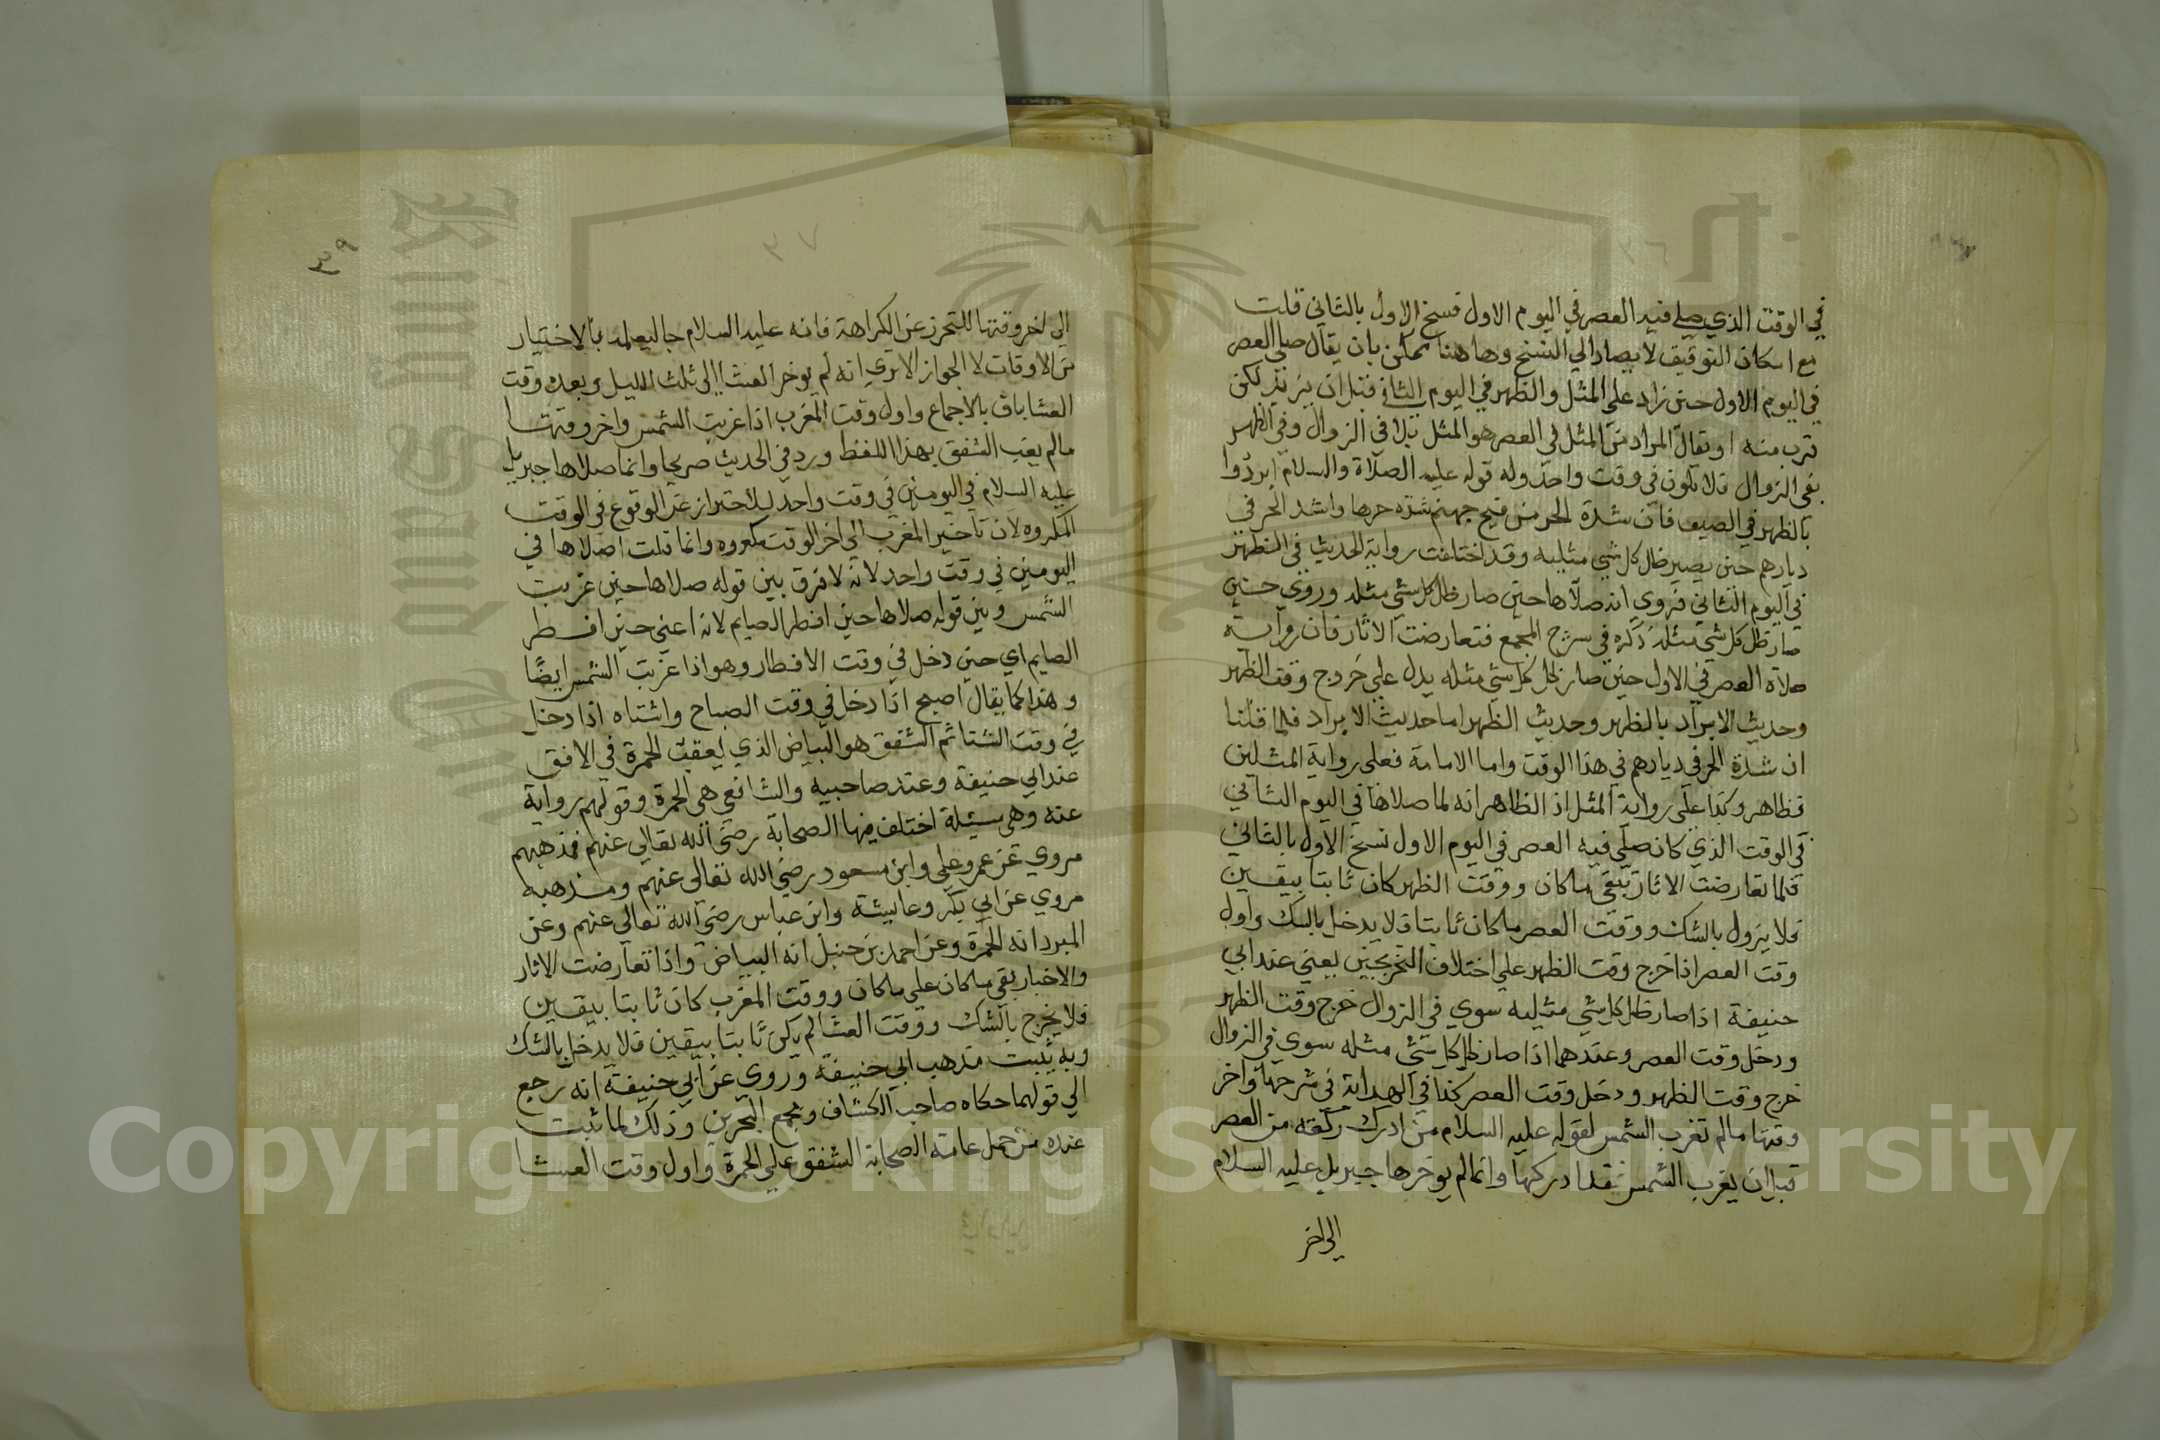 في الوقت الذي صلي فيه العصر في اليوم الاول فسخ الاول بالثاني قلت
مع امكان التوفيق لا يصار الي النسخ وها هنا ممكن بان يقال صلي العصر
في اليوم الاول حين زاد علي المثل والظهر في اليوم الثاني قبل ان يزيد لكن
قرب منه او يقال المراد من المثل في العصر هو المثل بلا في الزوال وفي الظهر
بفي الزوال فلا تكون في وقت واحد وله قوله عليه الصلاة والسلام ابردوا
بالظهر في الصيف فان شدة الحر من فيح جهنم شدة حرها واشد الحر في
ديارهم حين يصير ظل كل شي مثليه وقد اختلفت رواية الحديث في الظهر
في اليوم الثاني فروي انه صلاها حين صار ظل كل شي مثله وروي حين
صار ظل كل شي مثله ذكره في شرح المجمع فتعارضت الاثار فان رواية
صلاة العصر في الاول حين صار ظل كل شي مثله يدل علي خروج وقت الظهر
وحديث الابراد بالظهر وحديث الظهر اما حديث الابراد فلما قلنا
ان شدة الحر في ديارهم في هذا الوقت واما الامامة فعلي رواية المثلين
فظاهر وكذا علي رواية المثل اذ الظاهر انه لما صلاها في اليوم الثاني
في الوقت الذي كان صلي فيه العصر في اليوم الاول نسخ الاول بالثاني
فلما تعارضت الاثار تبقي ما كان ووقت الظهر كان ثابتا بيقين
فلا يزول بالشك ووقت العصر ما كان ثابتا فلا يدخل بالشك واول
وقت العصر اذا خرج وقت الظهر علي اختلاف التخريجين يعني عند ابي
حنيفة اذا صار ظل كل شي مثليه سوي في الزوال خرج وقت الظهر
ودخل وقت العصر وعندهما اذا صار ظل كل شي مثله سوي في الزوال
خرج وقت الظهر ودخل وقت العصر كذا في الهداية في شرحها واخر
وقتها مالم تغرب الشمس لقوله عليه السلام من ادرك ركعة من العصر
قبل ان يغرب الشمس فقد ادركها وانما لم يوخرها جبريل عليه السلام
الي اخر
٣٩
٣٧
الي اخر وقتها للتحرز عن الكراهة فانه عليه السلام جا ليعلمه بالاختيار
من الاوقات لا الجواز الا تري انه لم يوخر العشا الي ثلث الليل وبعده وقت
العشا باق بالاجماع واول وقت المغرب اذا غربت الشمس واخر وقتها
مالم يغب الشفق بهذا اللفظ ورد في الحديث صريحا وانما صلاها جبريل
عليه السلام في اليومين في وقت واحد للاحتراز عن الوقوع في الوقت
المكروه لان تاخير المغرب الي اخر الوقت مكروه وانما قلت اصلاها في
اليومين في وقت واحد لانه لا فرق بين قوله صلاها حين غربت
الشمس وبين قوله صلاها حين افطر الصايم لانه اعني حين افطر
الصايم اي حين دخل في وقت الافطار وهو اذا غربت الشمس ايضا
وهذا كما يقال اصبح اذا دخل في وقت الصباح واشتاه اذا دخل
في وقت الشتا ثم الشفق هو البياض الذي يعقب الحمرة في الافق
عند ابي حنيفة وعند صاحبيه والشافعي هي الحمرة وقولهم رواية
عنه وهي مسيلة اختلف فيها الصحابة رضي الله تعالي عنهم فمذهبهم
مروي عن عمر وعلي وابن مسعود رضي الله تعالي عنهم ومذهبه
مروي عن ابي بكر وعايشة وابن عباس رضي الله تعالي عنهم وعن
المبرد انه الحمرة وعن احمد بن حنبل انه البياض واذا تعارضت الاثار
والاخبار بقي ما كان علي ما كان ووقت المغرب كان ثابتا بيقين
فلا يخرج بالشك ووقت العشا لم يكن ثابتا بيقين فلا يدخل بالشك
وبه يثبت مذهب ابي حنيفة وروي عن ابي حنيفة انه رجع
الي قولهما حكاه صاحب الكشاف ومجمع البحرين وذلك لما ثبت
عنده من حمل عامة الصحابة الشفق علي الحمرة واول وقت العشا
Copyright © King Saud University